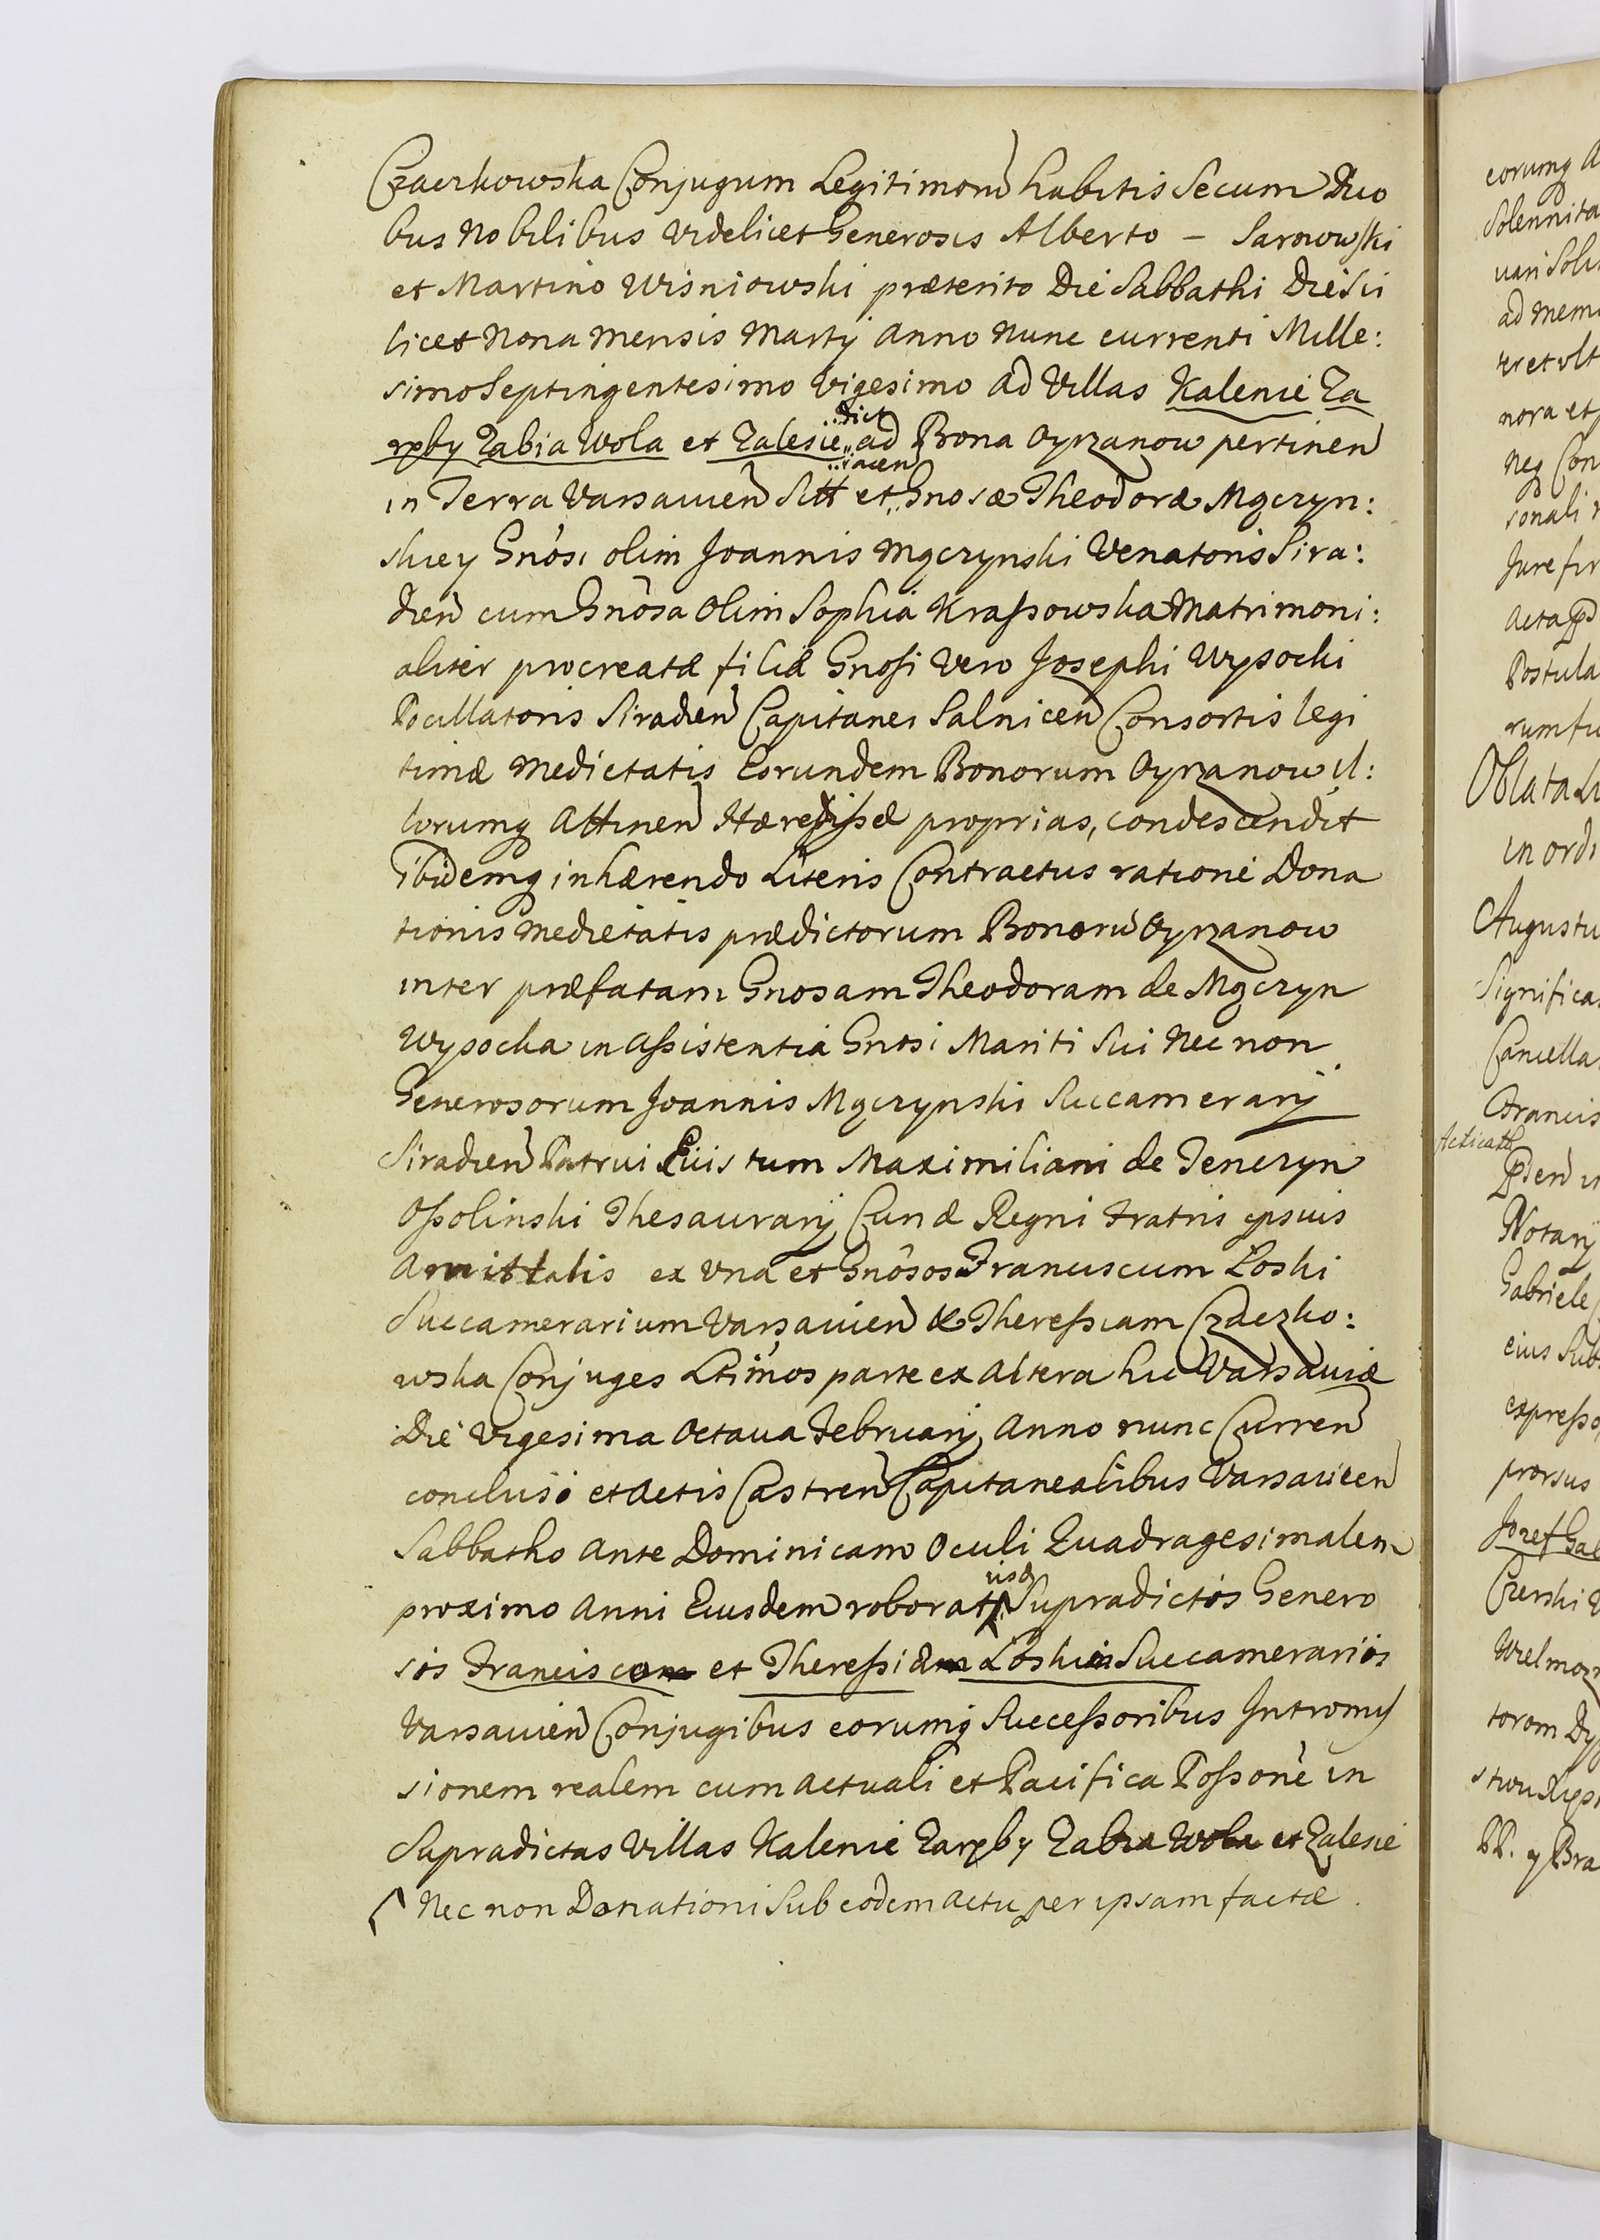 Czaerkowska Conjugum Legitimom habitis Secum Duo
bus Nobilibus Videlicet Generosis Alberto – Sarnowski
et Martino Wisniowski præterito Die Sabbathi Die Sci
licet Nona Mensis Martij Anno Nunc currenti Mille:
simo Septingentesimo Vigesimo ad Villas Kalenie Za
rzby Zabia Wola et Zalesie ad Bona Oyrzanow pertinen
in Terra Varsavien Sitt et Gnosæ Theodoræ Mączyn:
skiey Gnosi olim Joannis Mączynski Venatoris Sira:
dien cum Gnosa olim Sophia Krassowska Matrimoni:
aliter procreatæ filiæ Gnosi Vero Josephi Wysocki
Pocillatoris Siradien Capitanei Salnicen Consortis legi
timæ Medietatis Eorundem Bonorum Oyrzanow il:
lorumq Attinen Hæredissæ proprias, condescendit
ibidemq inhærendo Literis Contractus ratione Dona
tionis Medietatis prædictorum Bonoru Oyrzanow
inter præfatam Gnosam Theodoram de Mączyn
Wysocka in assistentia Gnosi Mariti Sui Nec non
Generosorum Joannis Mączynski Succamerarij
Siradien Patrui Eius tum Maximiliani de Tenczyn
Ossolinski Thesaurarij Curiæ Regni Fratris ipsius
Amittalis ex Una et Gnosos Franciscum Łoski
Succamerarium Varsavien & Theressiam Czaczko:
wska Conjuges Ltimos parte ex altera hic Varsaviæ
Die Vigesima Octava Februarij Anno nunc Curren
concluso et Actis Castren Capitanealibus Varsavien
Sabbatho Ante Dominicam Oculi Quadragesimalem
proximo Anni Eiusdem roborat Supradictos Genero
sos Franciscum et Theressiam Łoskie Succamerarios
Varsavien Conjugibus eorumq Successoribus Intromis
sionem realem cum actuali et Pacifica Possone in
Supradictas Villas Kalenie Zarzby Zabia Wola et Zalesie
Nec non Donationi Sub eodem actu per ipsam factæ.
eorumq
Solennita
ad mem
nora et
Postula
Oblata
in ordi
Augustu
Significa
Cancella
Francis
Notarij
Gabriele
eius Sub
expresso
prorsus
Jozef Gal
Czerski
Wielmoz